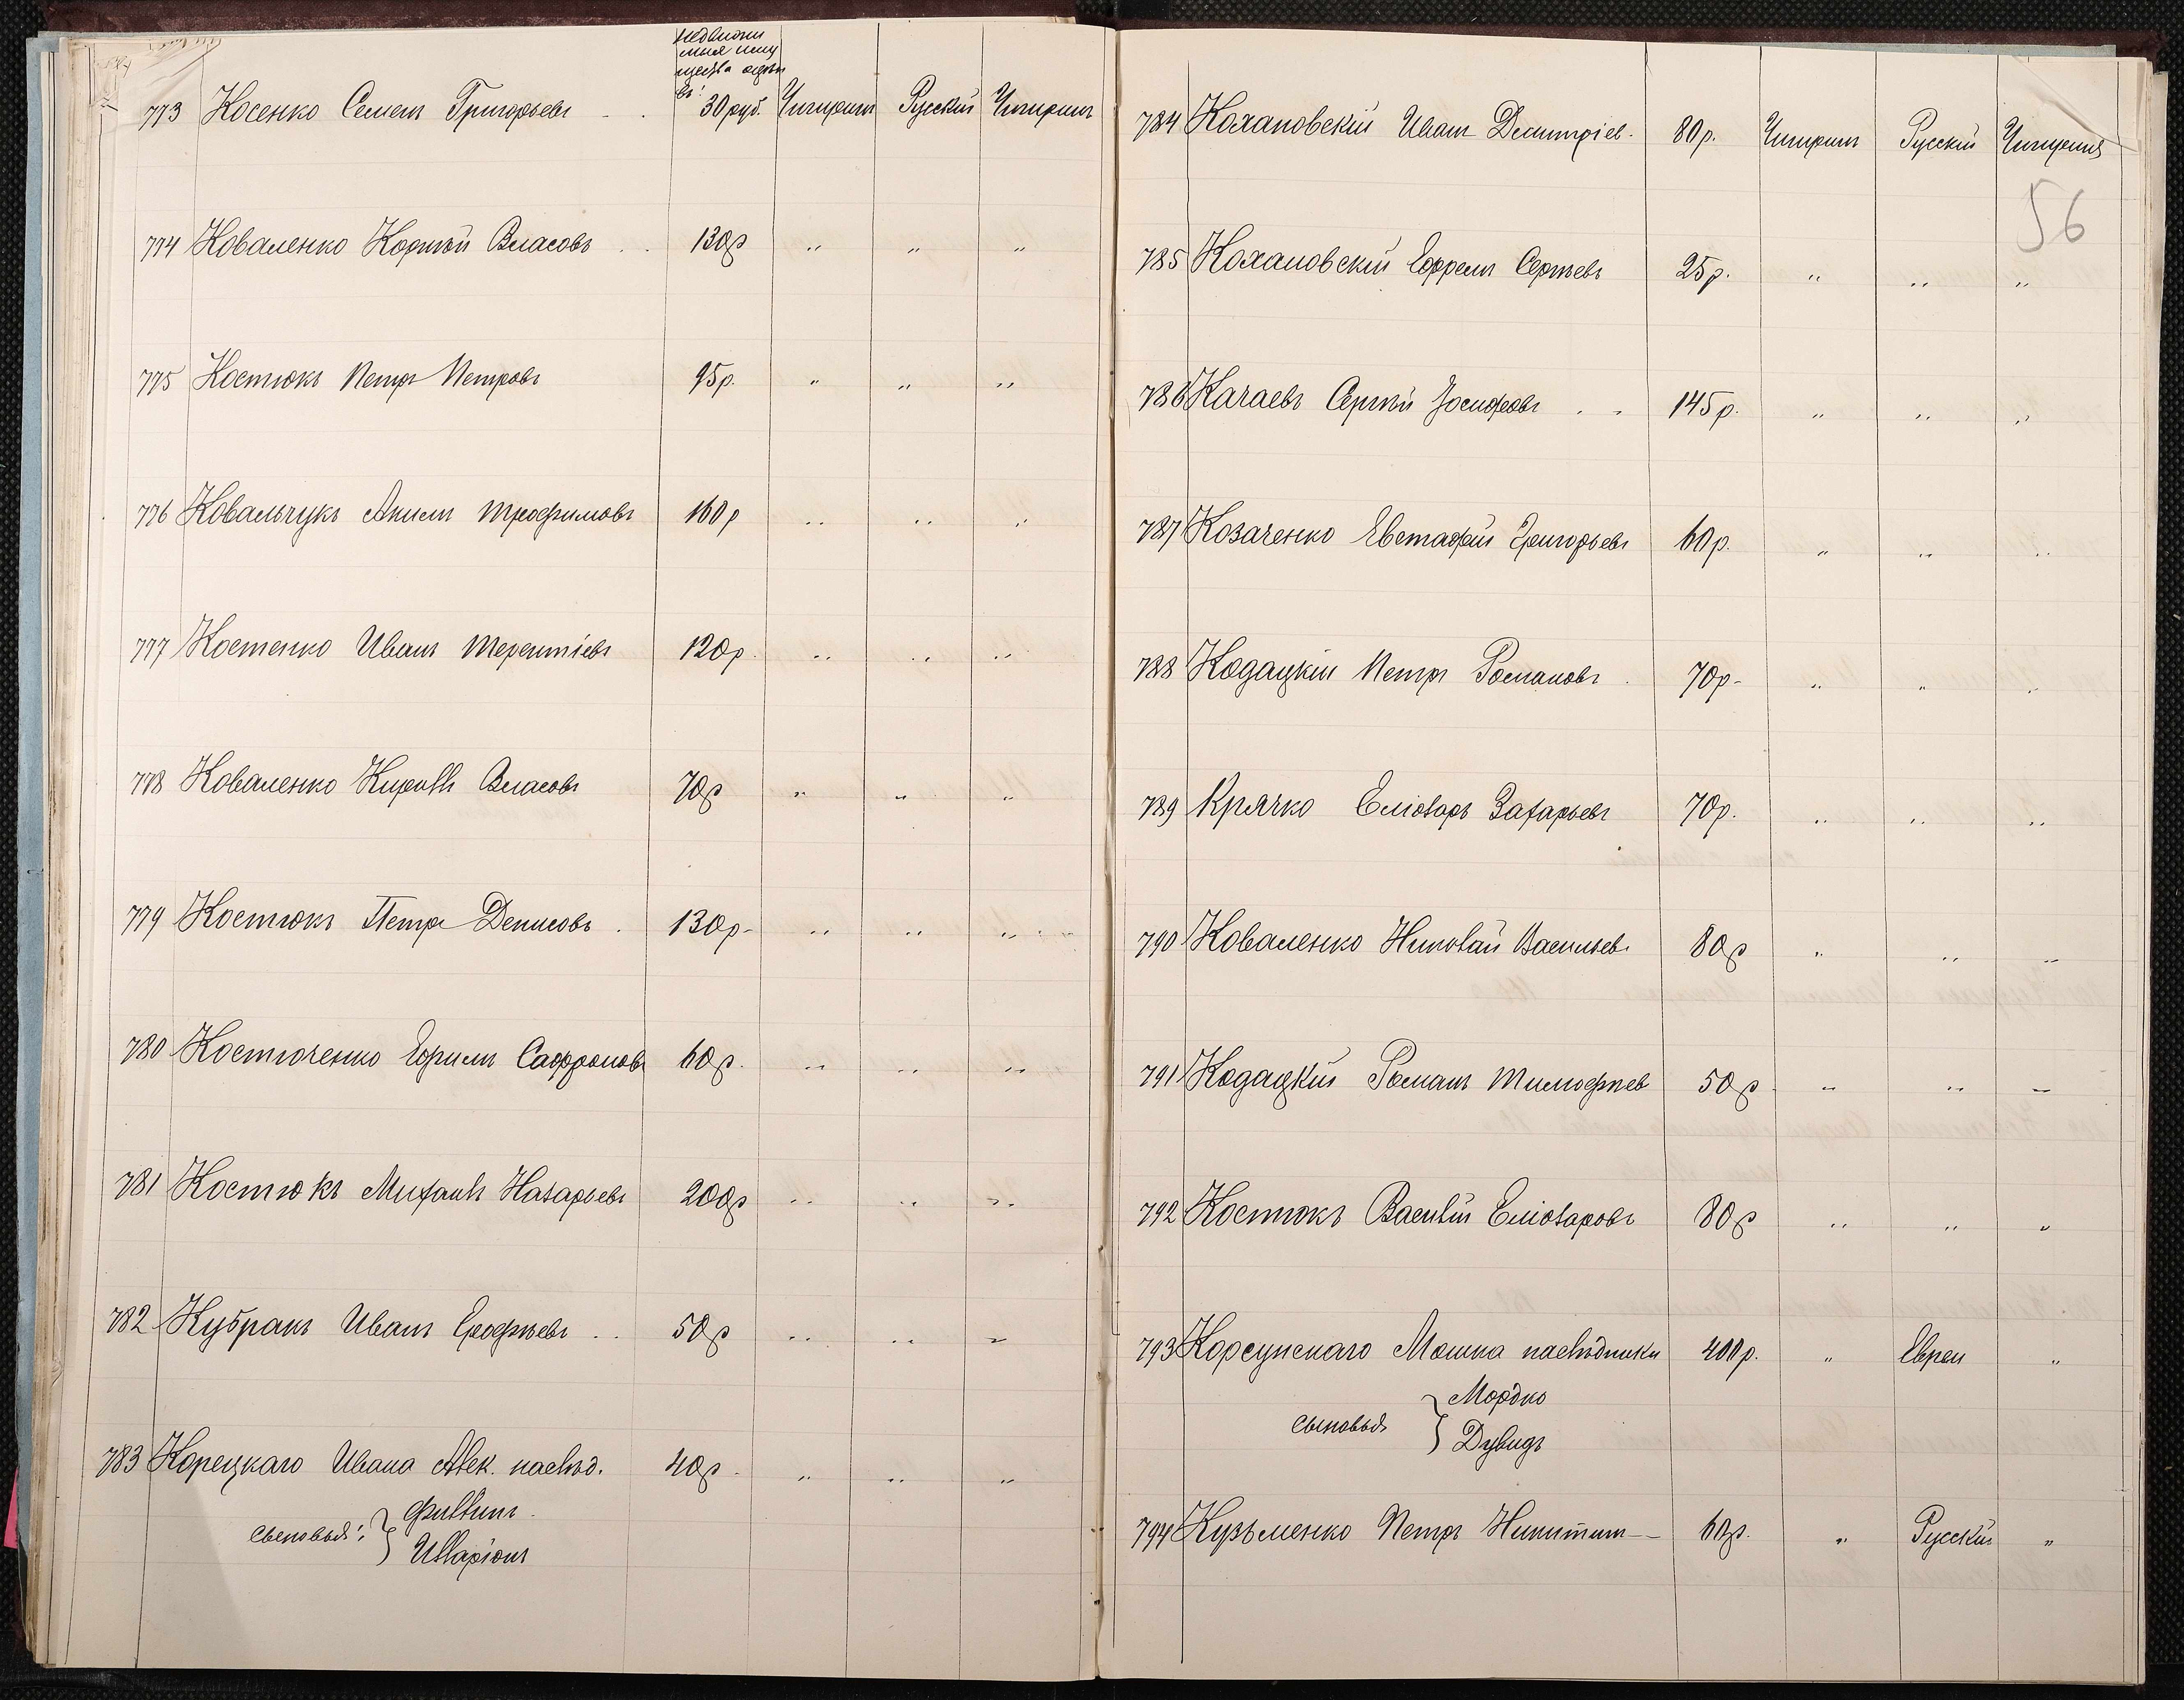 недвижи
мыя иму
щества оцѣн
въ:
773 Косенко Семенъ Григорьевъ - . 30 руб. Чигиринъ Русскій Чигиринъ
774 Коваленко Корнѣй Власовъ . . 130р „ „ „
775 Костюкъ Петръ Петровъ 95р. „ „ „
776 Ковальчукъ Акимъ Трофимовъ 160р „ „ „
777 Костенко Иванъ Терентіевъ 120р. „ „ „
778 Коваленко Кириллъ Власовъ 70р „ „ „
779 Костюкъ Петръ Денисовъ . 130р- „ „ „
780 Костюченко Ефимъ Сафроновъ 60р. „ „ „
781 Костюкъ Михаилъ Назарьевъ 200р „ „ „
782 Кубракъ Иванъ Ерофѣевъ . . 50р „ „ „
783 Корецкаго Ивана Алек. наслѣд. 40р. „ „ „
сыновья: } Филлипъ
Илларіонъ
784 Кохановскій Иванъ Дмитріев. 80р. Чигиринъ Русскій Чигиринъ
56
785 Кохановскій Ефремъ Сергѣевъ 25р. „ „ „
786 Качаевъ Сергѣй Іосифовъ . - 145р. „ „ „
787 Козаченко Евстафій Григорьевъ 60р. „ „ „
788 Кодацкій Петръ Романовъ . 70р- „ „ „
789 Крячко Еліозаръ Захарьевъ 70р. „ „ „
790 Коваленко Николай Васильев. 80р „ „ „
791 Кодацкій Романъ Тимофѣев 50р „ „ „
792 Костюкъ Василій Еліозаровъ 80р „ „ „
793 Корсунскаго Мошка наслѣдники 400р. „ Евреи „
сыновья } Мордко
Дувидъ
794 Кузьменко Петръ Никитин-- 60р. „ Русскій „